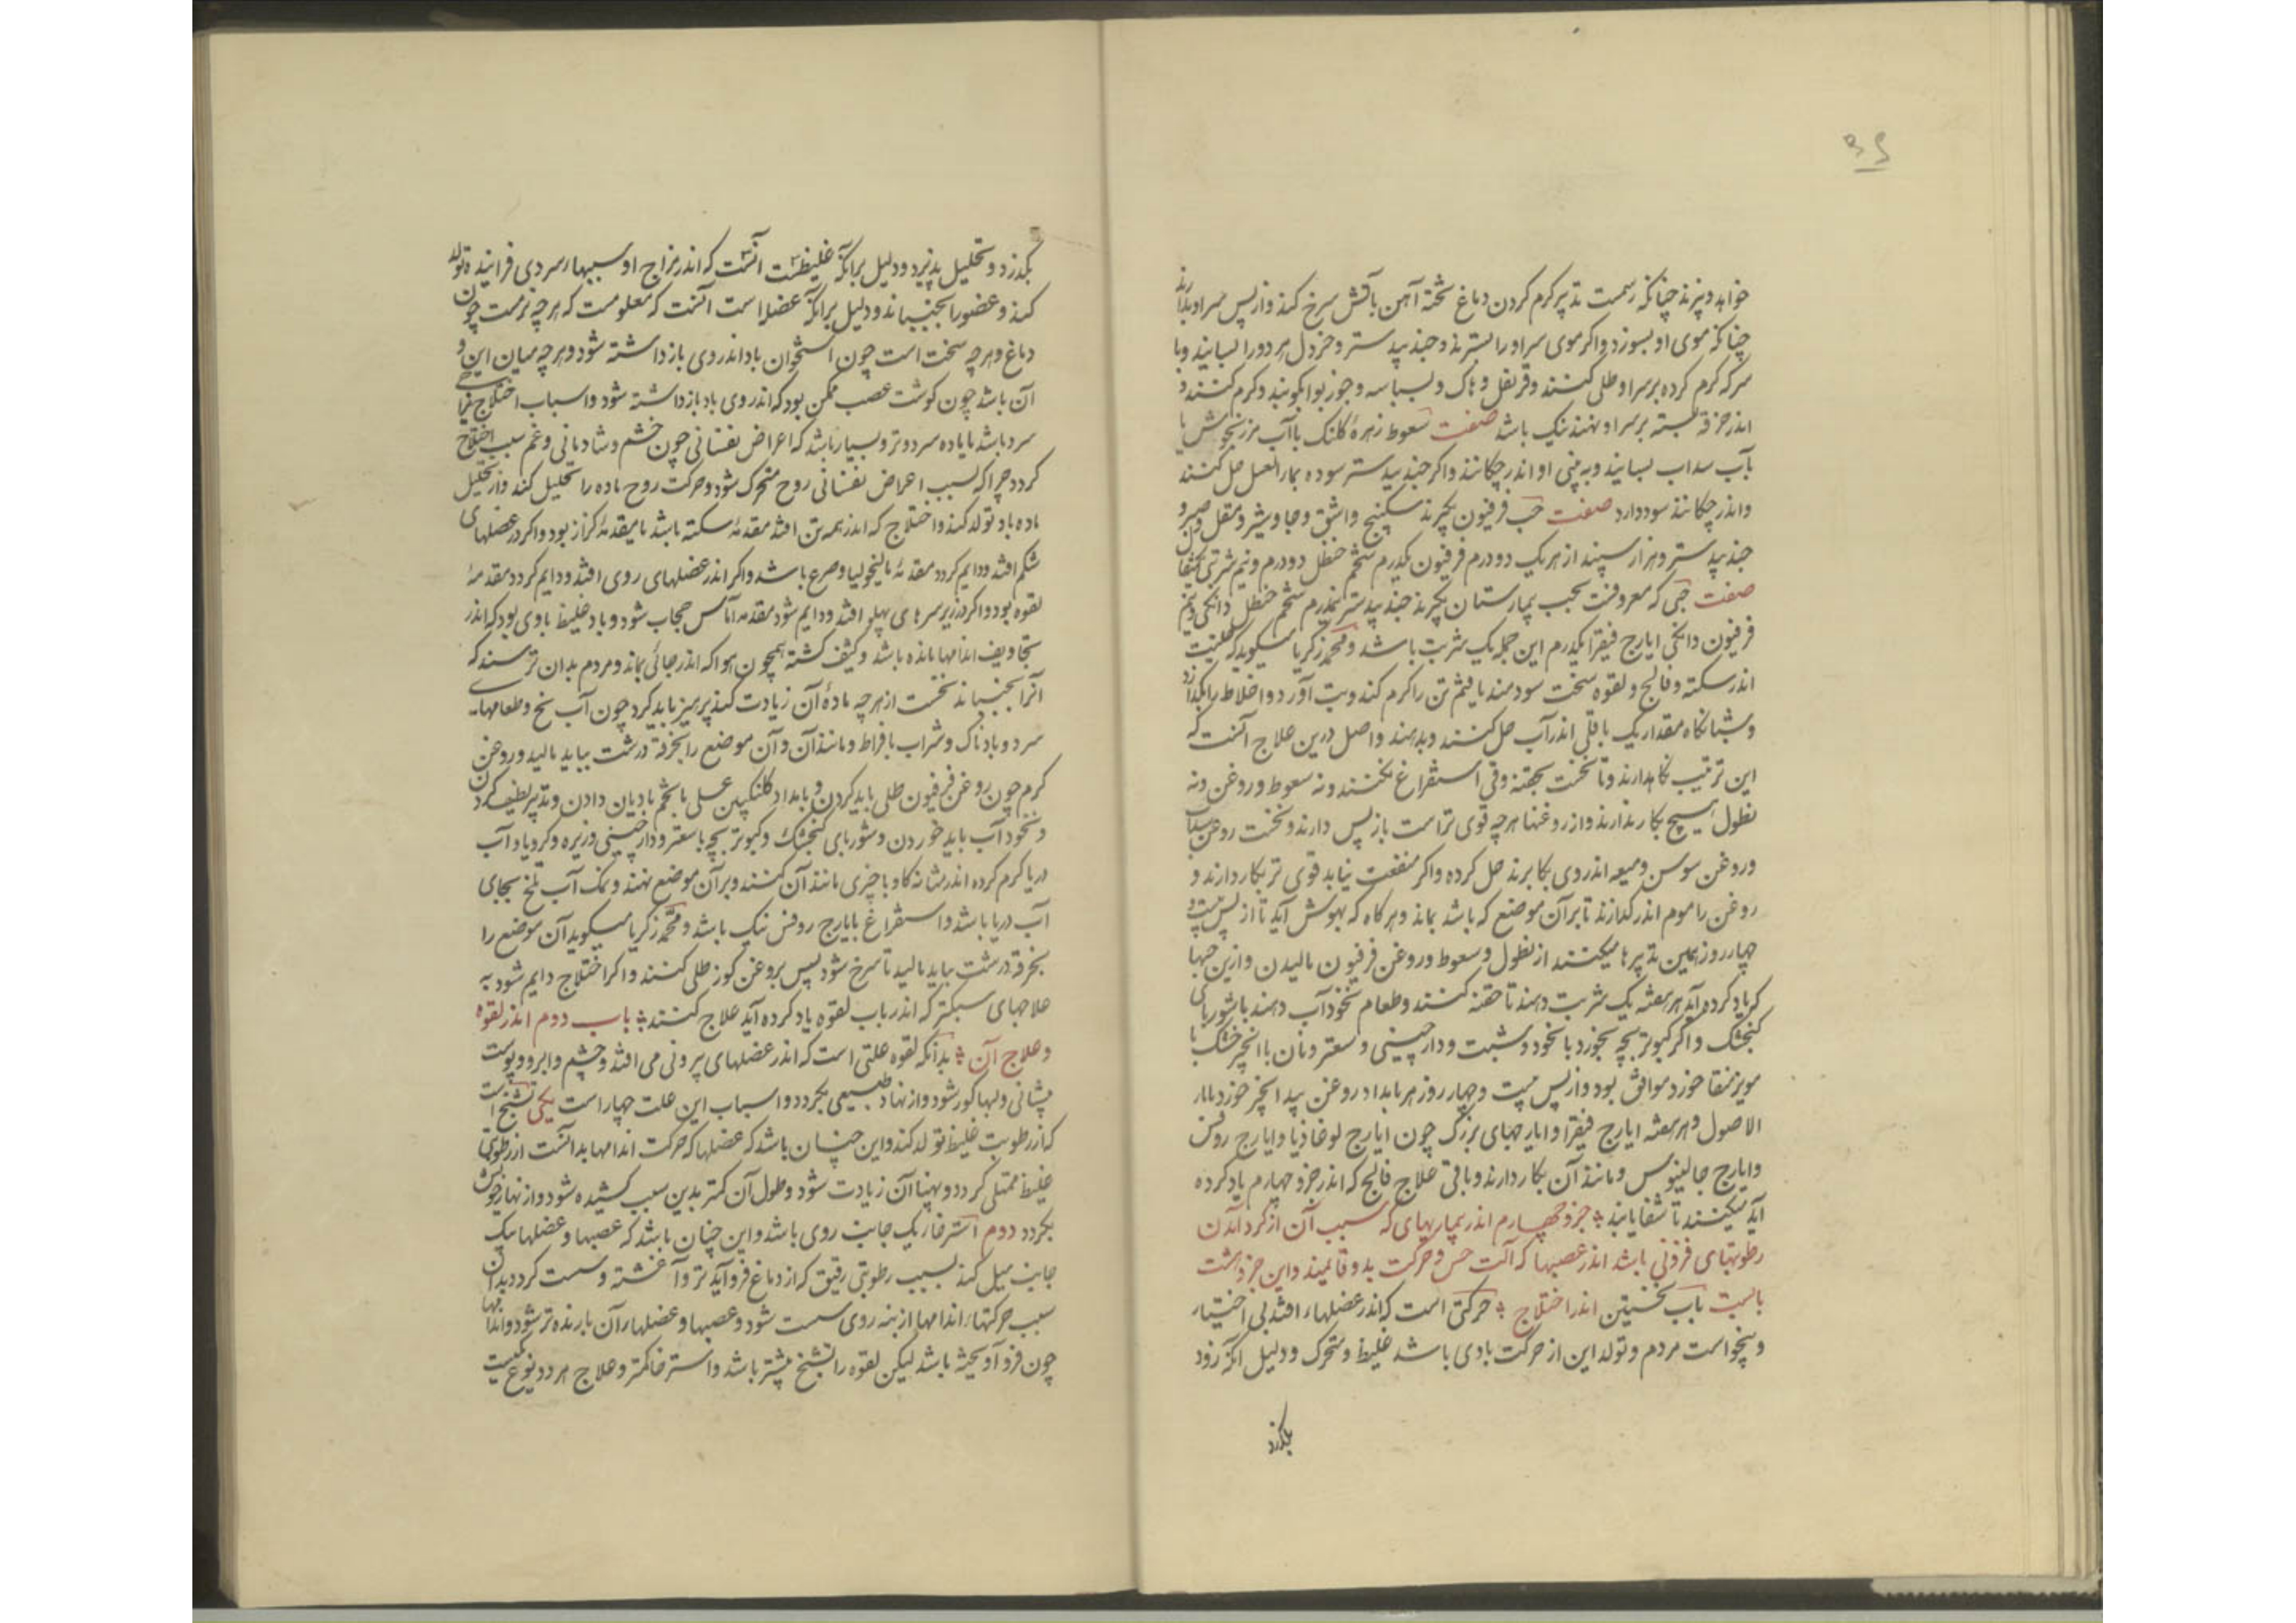 ۳۶
خواهد و پزند چنانکه رسمت تدبیر کرم کردن دماغ تختهٔ آهن باتش سرخ کنند و از پس سر او بدارند
چنانکه موی او بسوزد و اکر موی سر او را بسترند و جندبیدستر و خردل هر دو را بسایند و با
سرکه کرم کرده بر سر او طلی کنند و قرنفل و بسباسه و جوزبوا بکوبند و کرم کنند و
اندر خرقه بسته بر سر او نهند نیک باشد صفت سعوط زهرهٔ کلنک با آب مرزنجوش یا
بآب سداب بسایند و به بینی او اندر چکانند و اکر جندبیدستر سوده بماء العسل حل کنند
و اندر چکانند سود دارد صفت حب فرفیون بکیرند سکبینج و اشق و جاوشیر و مقل و صبر و
جندبیدستر و هزار سپند از هر یک دو درم فرفیون یکدرم شحم حنظل دو درم و نیم شربتی
صفت حبی که معروفست بحب بیمارستان بکیرند جندبیدستر نیمدرم شحم حنظل دانکی و نیم
فرفیون دانکی ایارج فیقرا یکدرم این جمله یک شربت باشد و محمد زکریا میکوید که حلتیت
اندر سکته و فالج و لقوه سخت سودمند یافتم تن را کرم کند و تب آورد و اخلاط را بکدازد
و شبانکاه مقدار یک باقلی اندر آب حل کنند و بدهند و اصل درین علاج آنست که
این ترتیب نکاهدارند و تا نخست بحقنه و قی استفراغ نکنند و نه سعوط و روغن و نه
نطول هیچ بکار ندارند و از روغنها هر چه قوی تر است باز پس دارند و نخست روغن سداب
و روغن سوسن و میعه اندر وی بکار برند حل کرده و اکر منفعت نیابد قوی تر بکار دارند و
روغن را موم اندر کدازند تا بر آن موضع که باشد بماند و هر کاه که بهوش آید تا از پس بیست و
چهار روز همین تدبیرها میکنند از نطول و سعوط و روغن فرفیون مالیدن و ازین حبها
که یاد کرده آید هر هفته یک شربت دهند تا حقنه کنند و طعام نخود آب دهند با شوربای
کنجشک و اکر کبوتر بچه بخورد با نخود و شبت و دارچینی و سعتر و نان با انجیر خشک با
مویز منقا خورد موافق بود و از پس بیست و چهار روز هر بامداد روغن بیدانجیر خورد با ماء
الاصول و هر هفته ایارج فیقرا و ایارجهای بزرک چون ایارج لوغاذیا و ایارج روفس
و ایارج جالینوس و مانند آن بکار دارند و باقی علاج فالج که اندر جزو چهارم یاد کرده
آید میکنند تا شفا یابند جزو چهارم اندر بیماریهای که سبب آن از کرد آمدن
رطوبتهای فزونی باشد اندر عصبها که آلت حس و حرکت بدو قایمند و این جزو هشت
بابست باب نخستین اندر اختلاج حرکتی است که اندر عضلها افتد بی اختیار
و بیخواست مردم و تولد این از حرکت بادی باشد غلیظ و متحرک و دلیل آنکه زود
بکذرد
بکذرد و تحلیل پذیرد و دلیل بر آنکه غلیظست آنست که اندر مزاج او سببهاء سردی فزایند تولد
کند و عضو را بجنباند و دلیل بر آنکه عضلا است آنست که معلومست که هر چه نرمست چون
دماغ و هر چه سخت است چون استخوان باد اندر وی بازداشته شود و هر چه میان این و
آن باشد چون کوشت عصب ممکن بود که اندر وی باد بازداشته شود و اسباب اختلاج
سرد باشد یا ماده سرد و تر و بسیار باشد که اعراض نفسانی چون خشم و شادمانی و غم سبب اختلاج
کردد چرا که بسبب اعراض نفسانی روح متحرک شود و حرکت روح ماده را تحلیل کند و از تحلیل
ماده باد تولد کند و اختلاج که اندر همه تن افتد مقدمهٔ سکته باشد یا مقدمهٔ کزاز بود و اکر در عضلهای
شکم افتد و دایم کردد مقدمهٔ مالیخولیا و صرع باشد و اکر اندر عضلهای روی افتد و دایم کردد مقدمهٔ
لقوه بود و اکر در زیر سرهای پهلو افتد و دایم شود مقدمه آماس حجاب شود و باد غلیظ بادی بود که اندر
تجاویف اندامها مانده باشد و کثیف کشته همچون هوا که اندر جائی بماند و مردم بدان ترسند که
آنرا بجنباند نخست از هر چه مادهٔ آن زیادت کند پرهیز باید کرد چون آب یخ و طعامهاء
سرد و بادناک و شراب بافراط و مانند آن و آن موضع را بخرقهٔ درشت بباید مالید و روغن
کرم چون روغن فرفیون طلی باید کردن و بامداد کلنکبین عسلی با تخم بادیان دادن و تدبیر لطیف کردن
و نخود آب باید خوردن و شوربای کنجشک و کبوتر بچه با سعتر و دارچینی و زیره و کرویا و آب
دریا کرم کرده اندر مثانه کاو یا چیزی مانند آن کنند و بر آن موضع نهند و نمک آب تلخ بجای
آب دریا باشد و استفراغ بایارج روفس نیک باشد و محمد زکریا میکوید آن موضع را
بخرقه درشت بباید مالید تا سرخ شود پس بروغن کوز طلی کنند و اکر اختلاج دایم شود به
علاجهای سبکتر که اندر باب لقوه یاد کرده آید علاج کنند باب دوم اندر لقوه
و علاج آن بدانکه لقوه علتی است که اندر عضلهای بیرونی می افتد و چشم و ابرو و پوست
پیشانی و لبها کوژ شود و از نهاد طبیعی بکردد و اسباب این علت چهار است یکی تشنج است
که از رطوبت غلیظ تولد کند و این چنان باشد که عضلها که حرکت اندامها بدانست از رطوبتی
غلیظ ممتلی کردد و پهنا آن زیادت شود و طول آن کمتر بدین سبب کشیده شود و از نهاد خویش
بکردد دوم استرخاء یک جانب روی باشد و این چنان باشد که عصبها و عضلها یک
جانب میل کند بسبب رطوبتی رقیق که از دماغ فرو آید تر و آغشته و سست کردد بدان
سبب حرکتهاء اندامها از بنه روی سست شود و عصبها و عضلهاء آن بارنده تر شود و اندامها
چون فرو آویخته باشد لیکن لقوه را تشنج بیشتر باشد و استرخا کمتر و علاج هر دو نوع یکیست